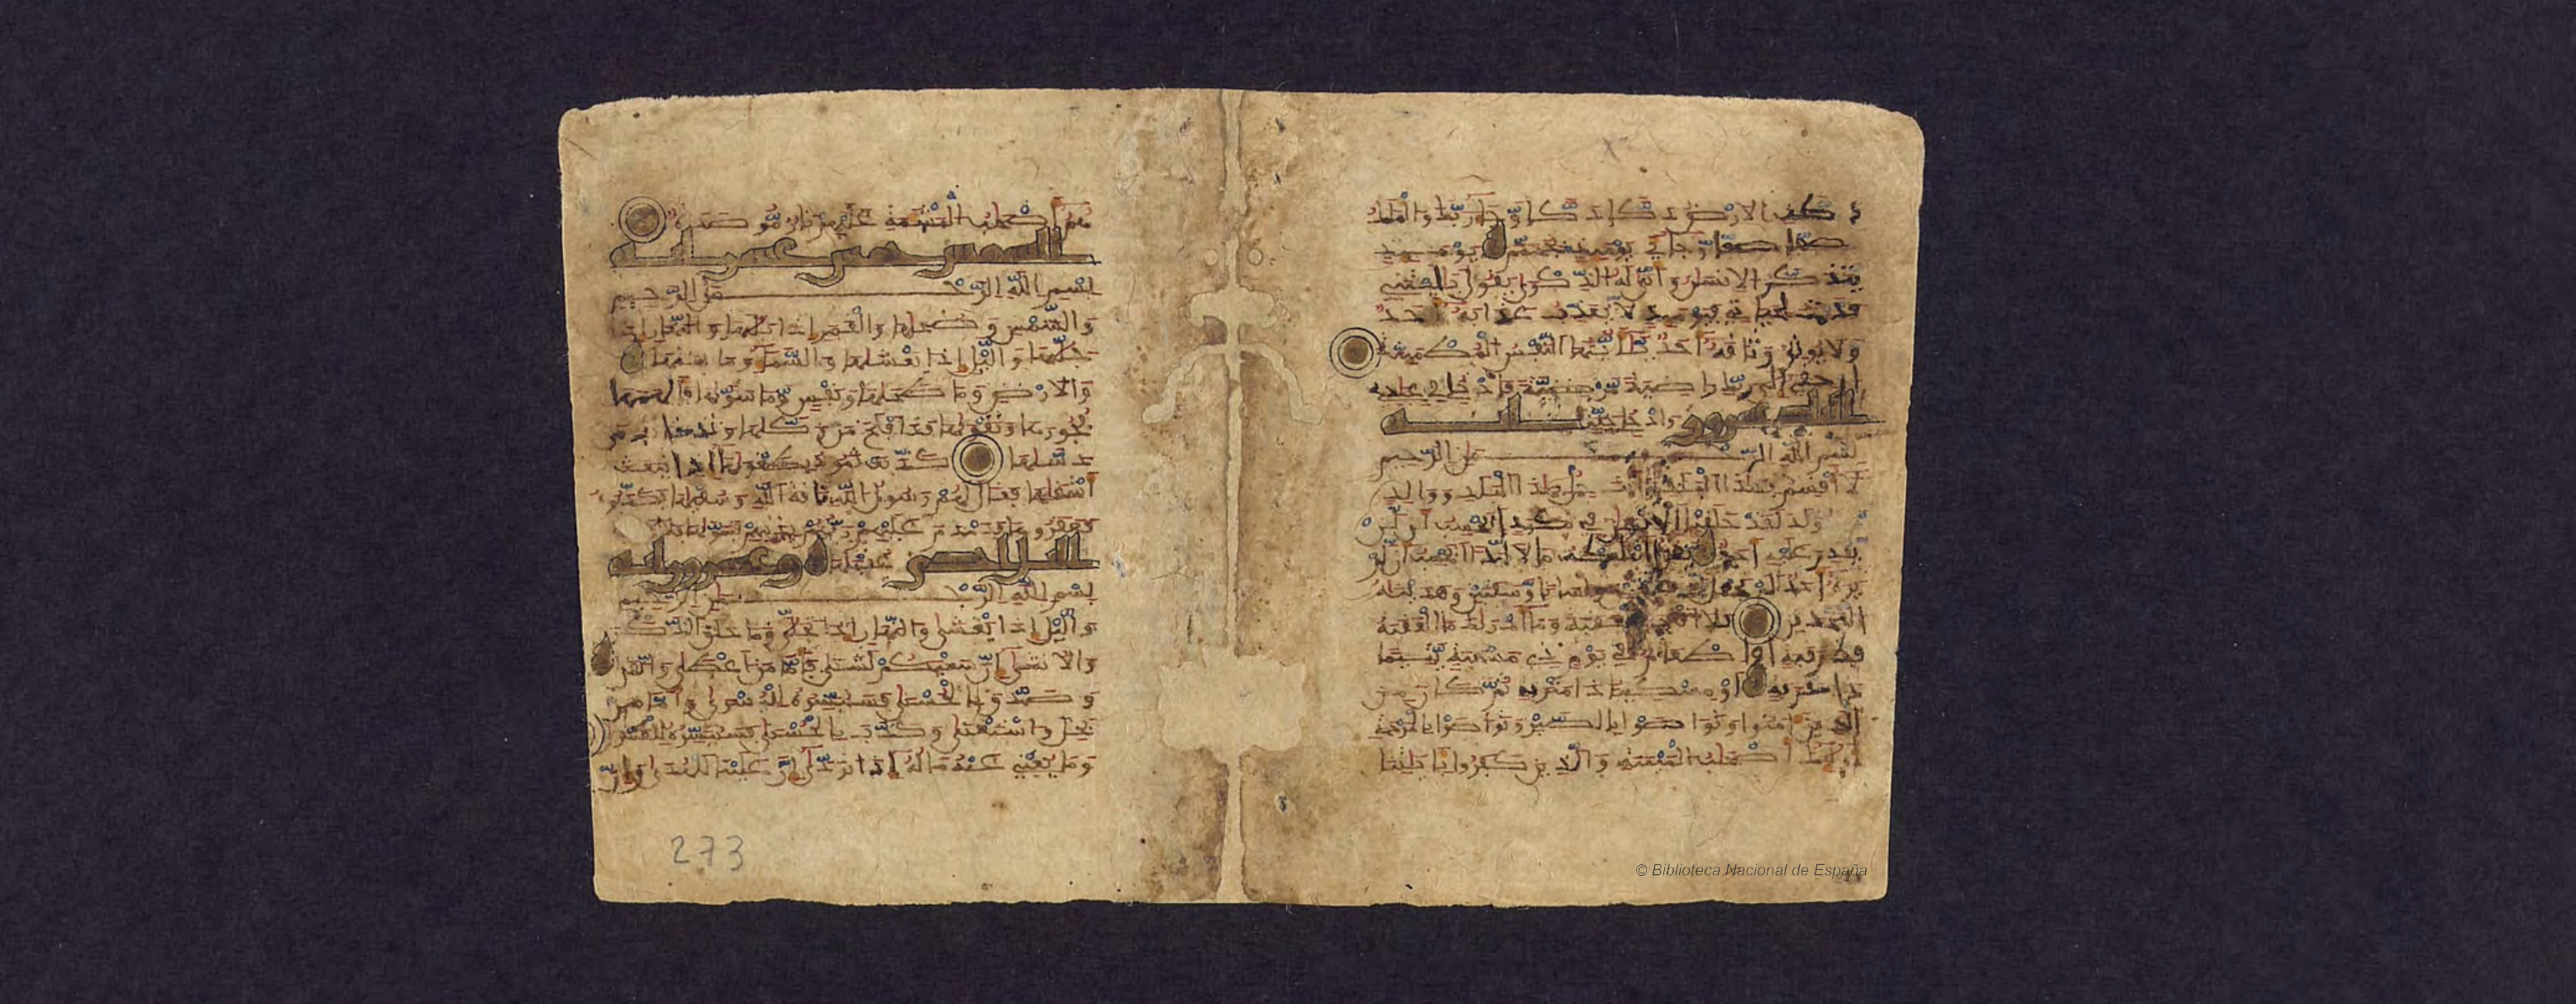 دكت الارض دكا دكا وجا ربك والملك
صفا صفا وجاي يوميذ بجهنم يوميذ
يتذكر الانسن وانى له الذكرى يقول يليتني
قدمت لحياتي فيوميذ لا يعذب عذابه احد
ولا يوثق وثاقه احد يايتها النفس المطمينة
ارجعي الى ربك راضية مرضية فادخلي في عبدي
البلد عشرون وادخلي جنتي اية
بسم الله الرحمن الرحيم
لا اقسم بهذا البلد وانت حل بهذا البلد ووالد
وما ولد لقد خلقنا الانسن في كبد ايحسب ان لن
يقدر عليه احد يقول اهلكت مالا لبدا ايحسب ان لم
يره احد الم نجعل له عينين ولسانا وشفتين وهدينه
النجدين فلا اقتحم العقبة وما ادريك ما العقبة
فك رقبة او اطعم في يوم ذي مسغبة يتيما
ذا مقربة او مسكينا ذا متربة ثم كان من
الذين امنوا وتواصوا بالصبر وتواصوا بالمرحمة
اوليك اصحب الميمنة والذين كفروا بايتنا
هم اصحب المشمة عليهم نار موصدة
الشمس خمس عشر اية
بسم الله الرحمن الرحيم
والشمس وضحيها والقمر اذا تليها والنهار اذا
جليها واليل اذا يغشيها والسما وما بنيها
والارض وما طحيها ونفس وما سويها فالهمها
فجورها وتقويها قد افلح من زكيها وقد خاب من
دسيها كذبت ثمود بطغويها اذ انبعث
اشقيها فقال لهم رسول الله ناقة الله وسقيها فكذبوه
فعقروها فدمدم عليهم ربهم بذنبهم فسويها ولا يخاف
اليل احدى عقبيها وعشرون اية
بسم الله الرحمن الرحيم
واليل اذا يغشى والنهار اذا تجلى وما خلق الذكر
والانثى ان سعيكم لشتى فاما من اعطى واتقى
وصدق بالحسنى فسنيسره لليسرى واما من
بخل واستغنى وكذب بالحسنى فسنيسره للعسرى
وما يغني عنه ماله اذا تردى ان علينا للهدى وان
273
© Biblioteca Nacional de España